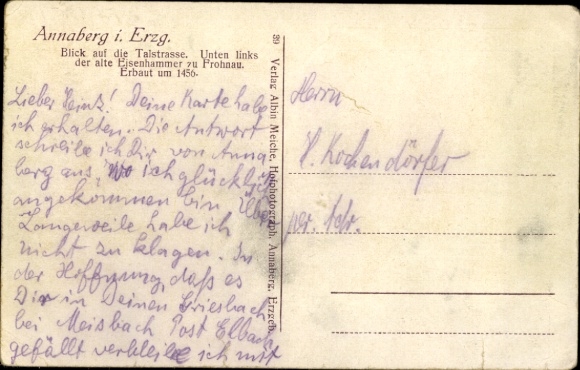 Annaberg i. Erzg.
Blick auf die Talstrasse. Unten links
der alte Eisenhammer zu Frohnau.
Erbaut um 1456.
Lieber Heinz! Deine Karte habe
ich erhalten. Die Antwort
schreibe ich Dir von Anna
berg aus, wo ich glücklich
angekommen bin. Über
Langeweile habe ich
nicht zu klagen. In
der Hoffnung, daß es
Dir in Deinen Griesbach
bei Meisbach Post Elbach
gefällt verbleibe ich mit
29 Verlag Albin Meiche, Hofphotograph, Annaberg, Erzgeb.
Herrn
H. Kochendörfer
per. Adr.